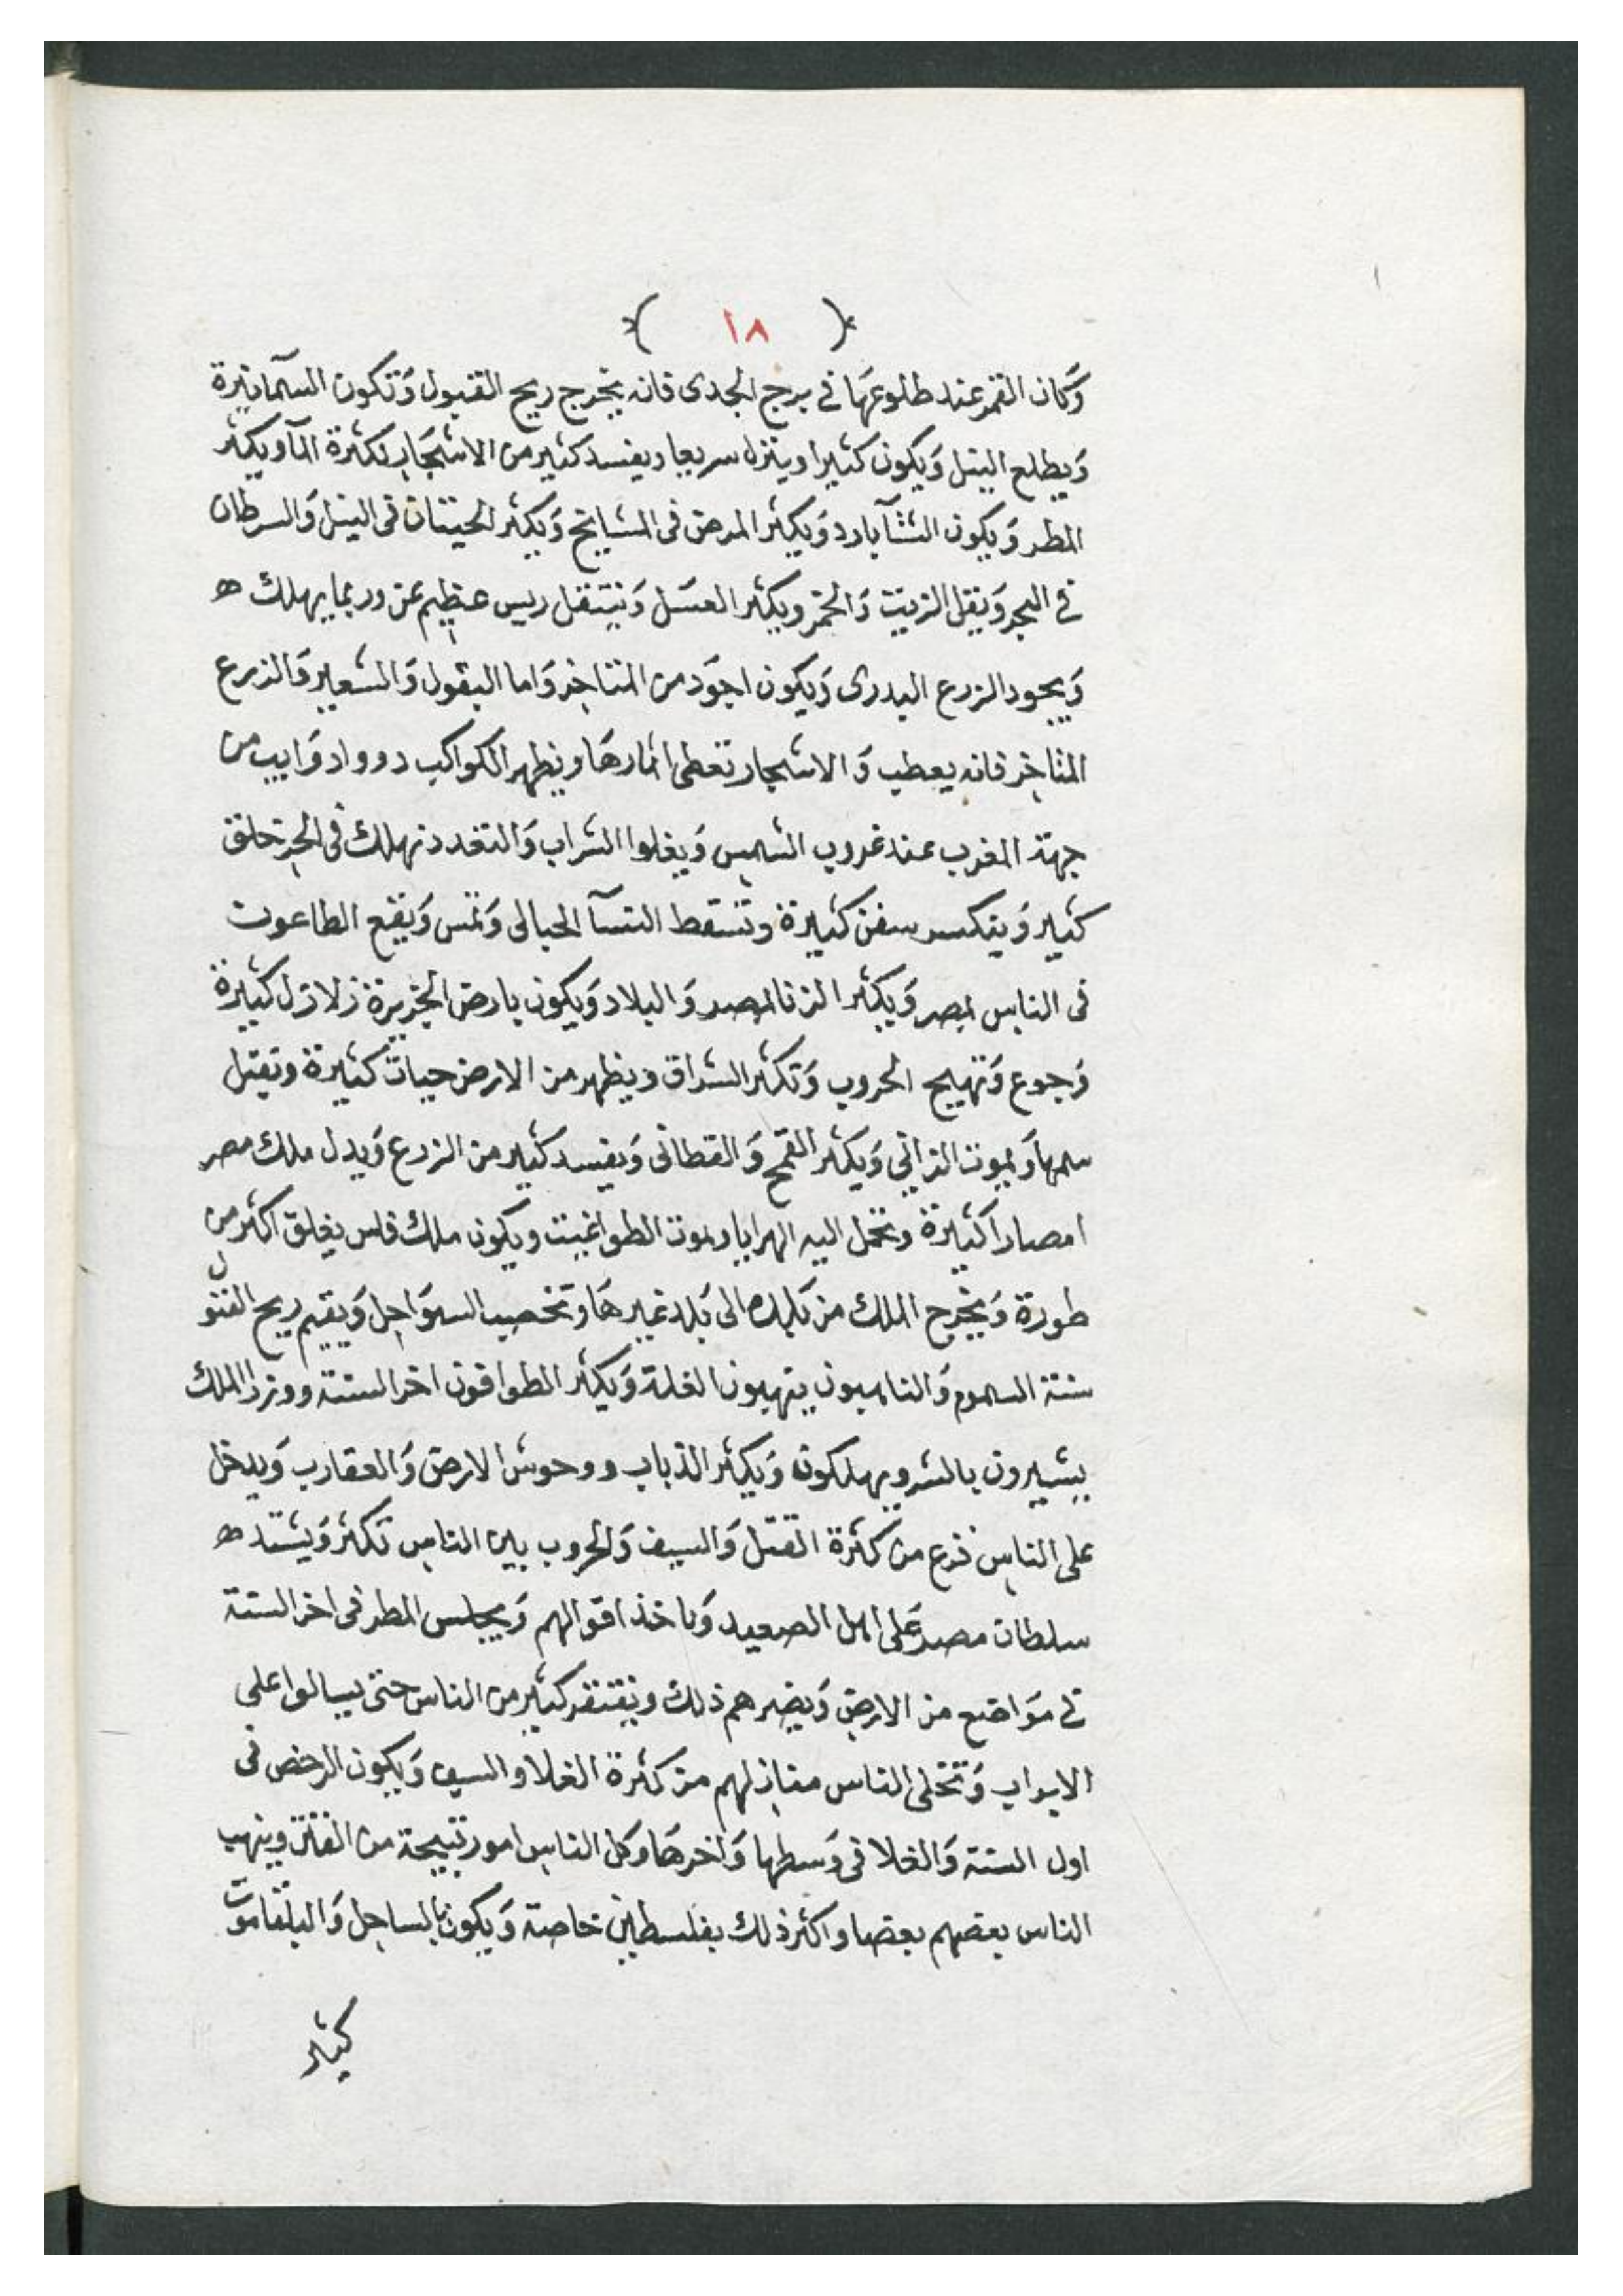 ( ١٨ )
وَكان القمر عند طلوعهَا فى برج الجدى فانه يخرج ريح القبول وَتكون السمآ نيرة
وَيطلع النيل وَيكون كثيرا وينزل سريعا ويفسد كثير من الاشجَار لكثرة المآ ويكثر
المطر وَيكون الشتآ بارد وَيكثر المرض فى المشايخ وَيكثر الحيتان فى النيل وَالسرطان
فى البحر وَيقل الزيت وَالخمر ويكثر العسَل وَينتقل ريس عظيم عن وربما يهلك ھ
وَيجود الزرع البدرى وَيكون اجوَد من المتاخر وَاما البقول وَالشعير وَالزرع
المتاخر فانه يعطب وَالاشجار تعطى اثمارهَا ويظهر الكواكب دوواد وَايب من
جهة المغرب عند غروب الشمس وَيغلوا الشراب وَ نهلك فى البحر خلق
كثير وَيتكسر سفن كثيرة وتسقط النسآ الحبالى وَتمس وَيقع الطاعون
فى الناس بمصر وَيكثر الزنا بمصر وَالبلاد وَيكون بارض الجزيرة زلازل كثيرة
وَجوع وَتهيج الحروب وَتكثر السراق ويظهر من الارض حيات كثيرة وتقتل
سمهَا وَيموت الزانى وَيكثر القمح وَالقطانى وَيفسد كثير من الزرع وَيدل ملك مصر
امصارا كثيرة وتحمل اليه الهدايا ويموت الطواغيت ويكون ملك فاس يغلق اكثر من
طورة وَيخرج الملك من بَلده الى بَلد غيرهَا وتخصب السوَاحل وَيقيم ريح القبول
ستة السموم وَالناس ينهبون الغلة وَيكثر الطوافون اخر السنة ووزرا الملك
يشيرون بالشر ويهلكون وَيكثر الذباب ووحوش الارض وَالعقارب وَيدخل
على الناس فزع من كثرة القتل وَالسيف وَالحروب بين الناس تكثر وَيشتد ھ
سلطان مصر عَلى اهل الصعيد وَياخذ اقوالهم وَيجلس المطر فى اخر السنة
فى موَاضع من الارض وَيضرهم ذلك ويفتقر كثير من الناس حتى يسالوا على
الابواب وَتتخلى الناس منازلهم من كثرة الغلا والسيف وَيكون الرخص فى
اول السنة وَالغلا فى وَسطها وَاخرهَا وَكل الناس امور قبيحة من الفتن وينهب
الناس بعضهم بعضا واكثر ذلك بفلسطين خاصة وَيكون بالساحل وَالبلقا موت
كثير